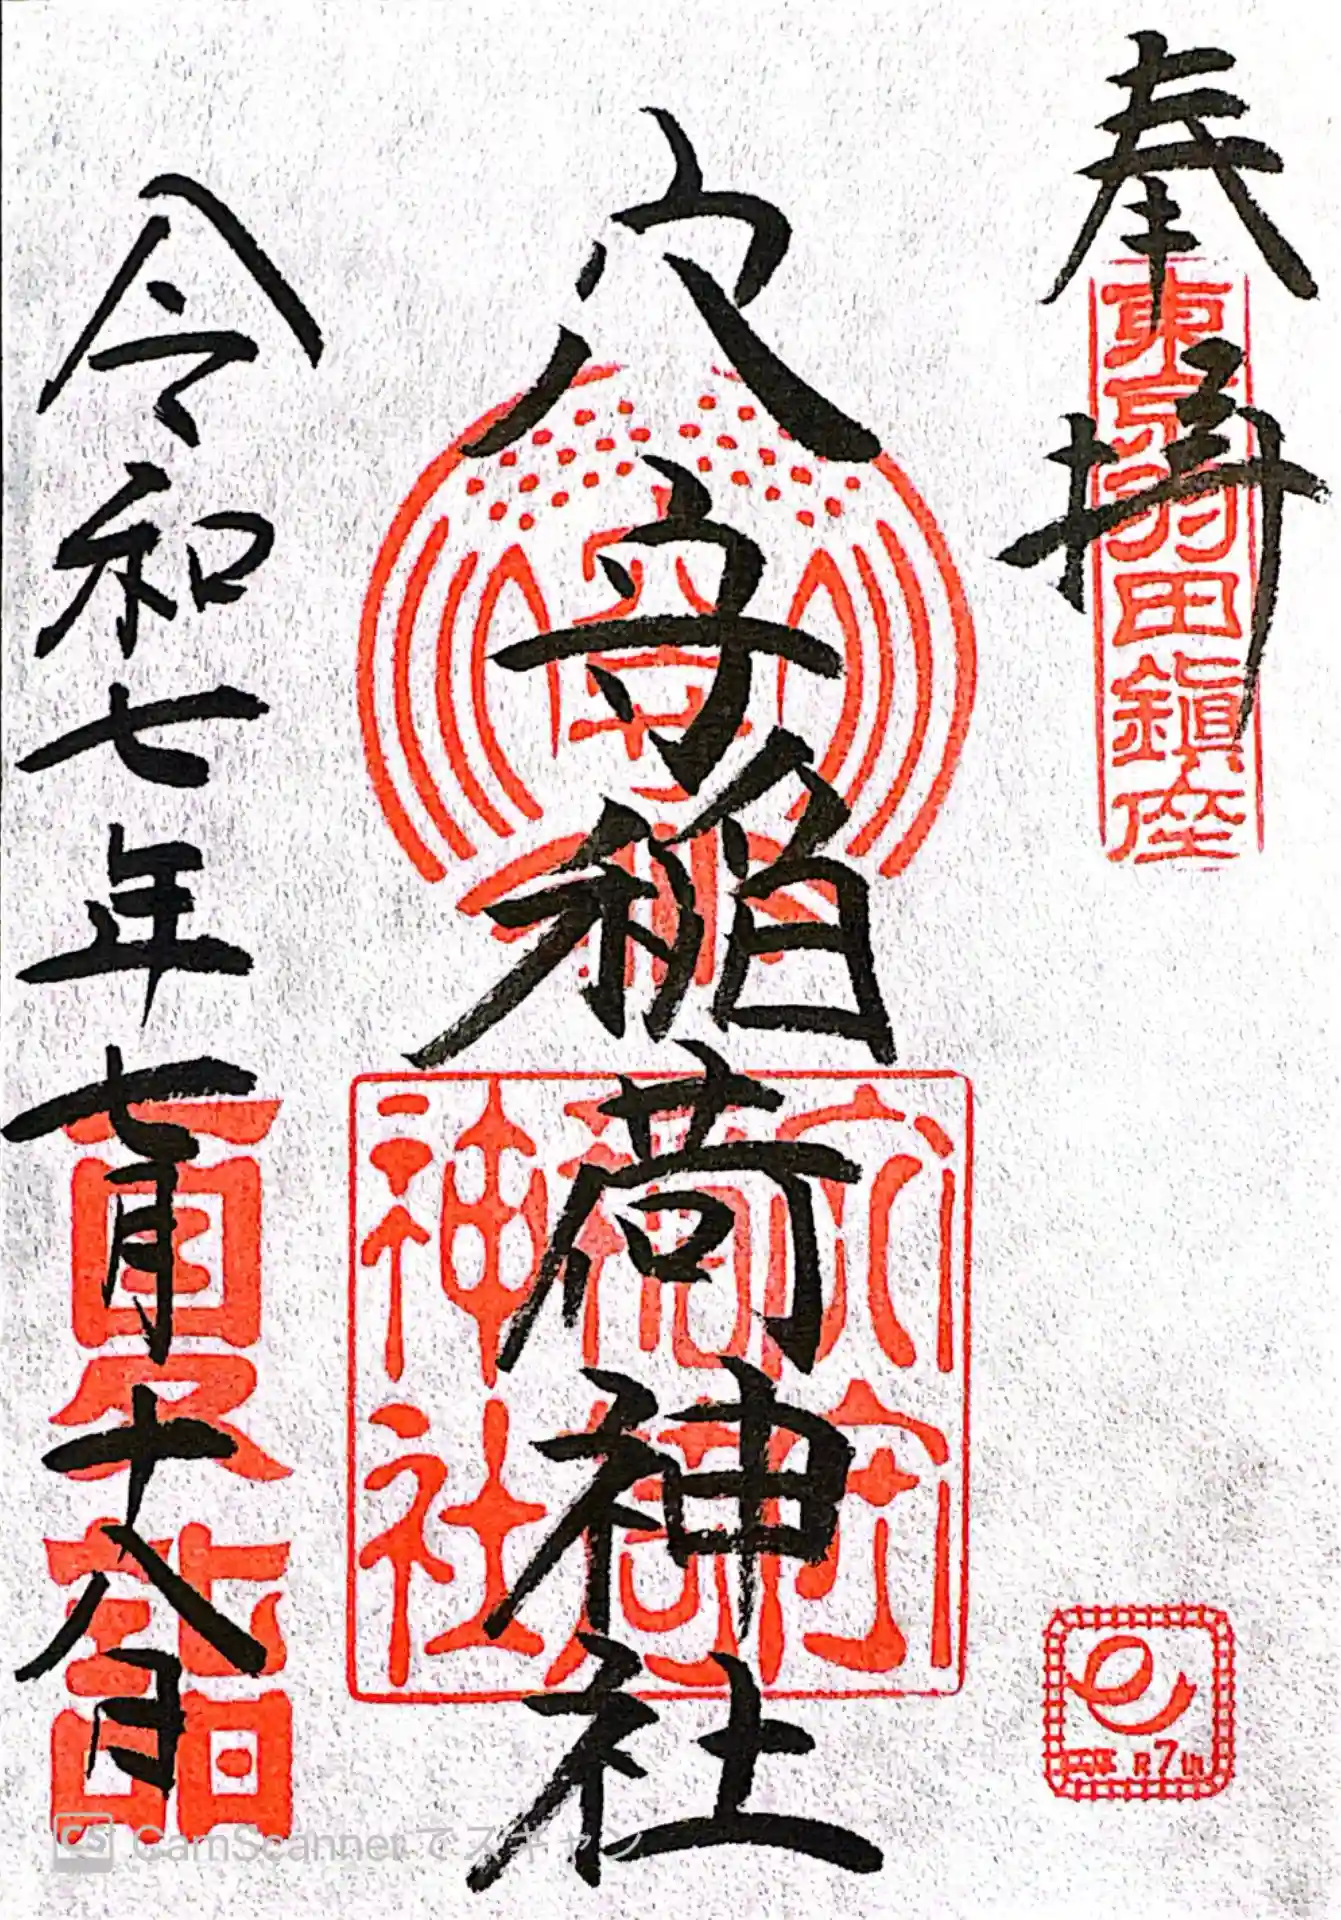 奉拝
東京羽田鎮座
穴守稲荷神社
穴守
稲荷
神社
令和七年七月十八日
夏詣
CS CamScannerでスキャン